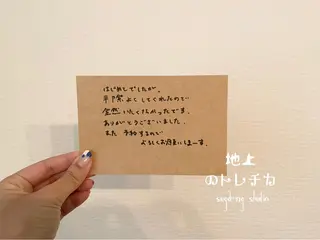 はじめてでしたが、
手際よくしてくれたので
全然いたくなかったです。
ありがとうございました。
また 予約するので
よろしくお願いしまーす。
地上
のトレチカ